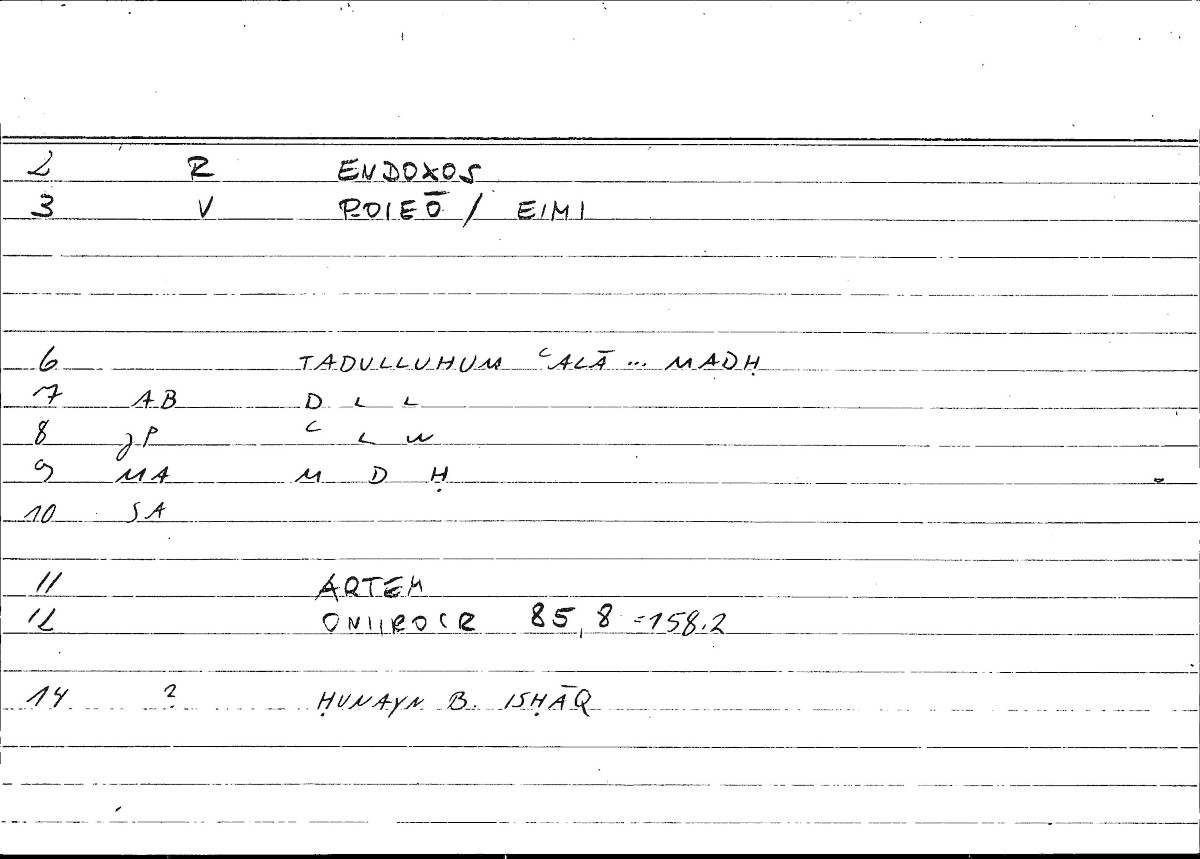 2 R ENDOXOS
3 V POIEŌ / EIMI
6 TADULLUHUM ʿALĀ ... MADḤ
7 AB D L L
8 JP ʿ L W
9 MA M D Ḥ
10 SA
11 ARTEM
12 ONIIROCR 85,8 =158.2
14 ? ḤUNAYN B. ISḤĀQ